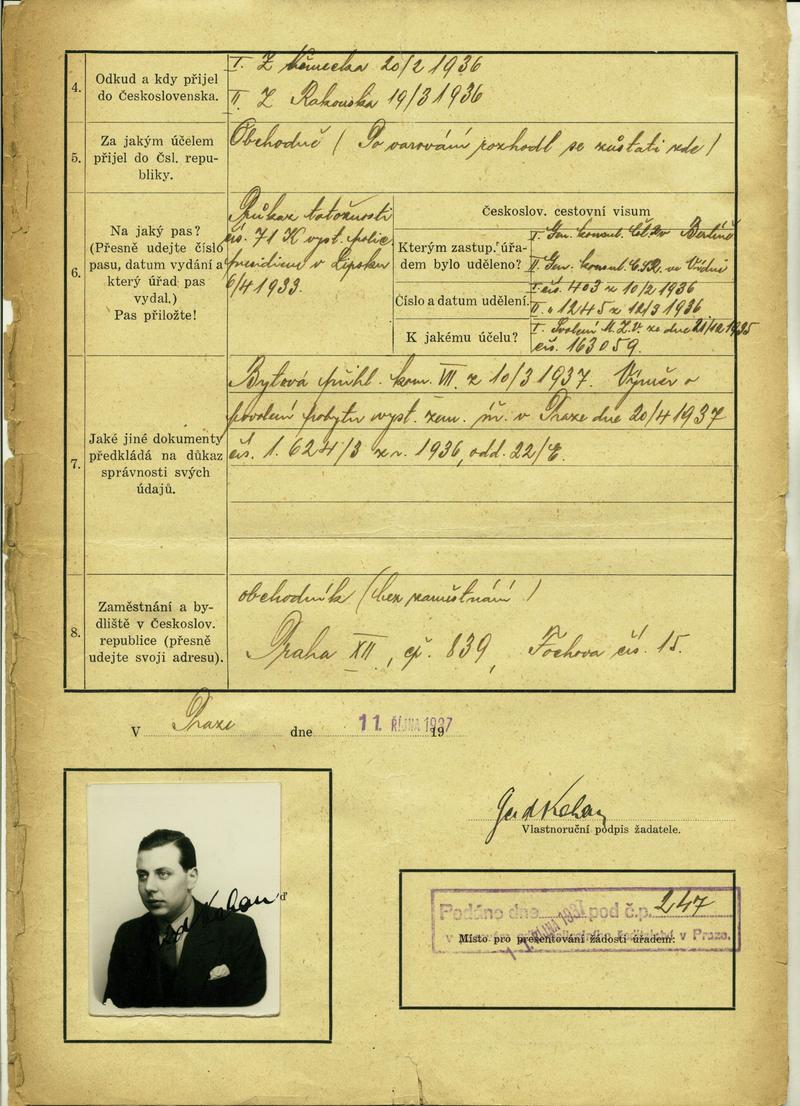 4.
Odkud a kdy přijel
do Československa.
I. Z Německa 20/2 1936
II. Z Rakouska 19/3 1936
5.
Za jakým účelem
přijel do Čsl. repu-
bliky.
Obchodně ( Po varování rozhodl se zůstati zde )
6.
Na jaký pas?
(Přesně udejte číslo
pasu, datum vydání a
který úřad pas
vydal.)
Pas přiložte!
Průkaz totožnosti
čís. 71 K vyst. polic.
presidiem v Lipsku
6/4 1933.
Českoslov. cestovní visum
Kterým zastup. úřa-
dem bylo uděleno?
I. Gen. konsul. ČSR v Berlíně
II. Gen. konsul. ČSR. ve Vídni
Číslo a datum udělení.
I. čís. 403 z 10/2 1936
II. " 1245 z 12/3 1936
K jakému účelu?
I. Svolení M. Z. V. ze dne 21/12 1935
čís. 163059.
7.
Jaké jiné dokumenty
předkládá na důkaz
správnosti svých
údajů.
Bytová přihl. kom. VII. z 10/3 1937. Výměr o
povolení pobytu vyst. zem. úř. v Praze dne 20/4 1937
čís. 1. 624/3 z r. 1936, odd. 22/E.
8.
Zaměstnání a by-
dliště v Českoslov.
republice (přesně
udejte svoji adresu).
obchodník (bez zaměstnání)
Praha XII, čp. 839, Fochova čís. 15.
V Praze dne 11. ŘÍJNA 1937 19
Vlastnoruční podpis žadatele.
Podáno dne pod č.p. 247
Místo pro presentování žádosti úřadem.
v Praze.